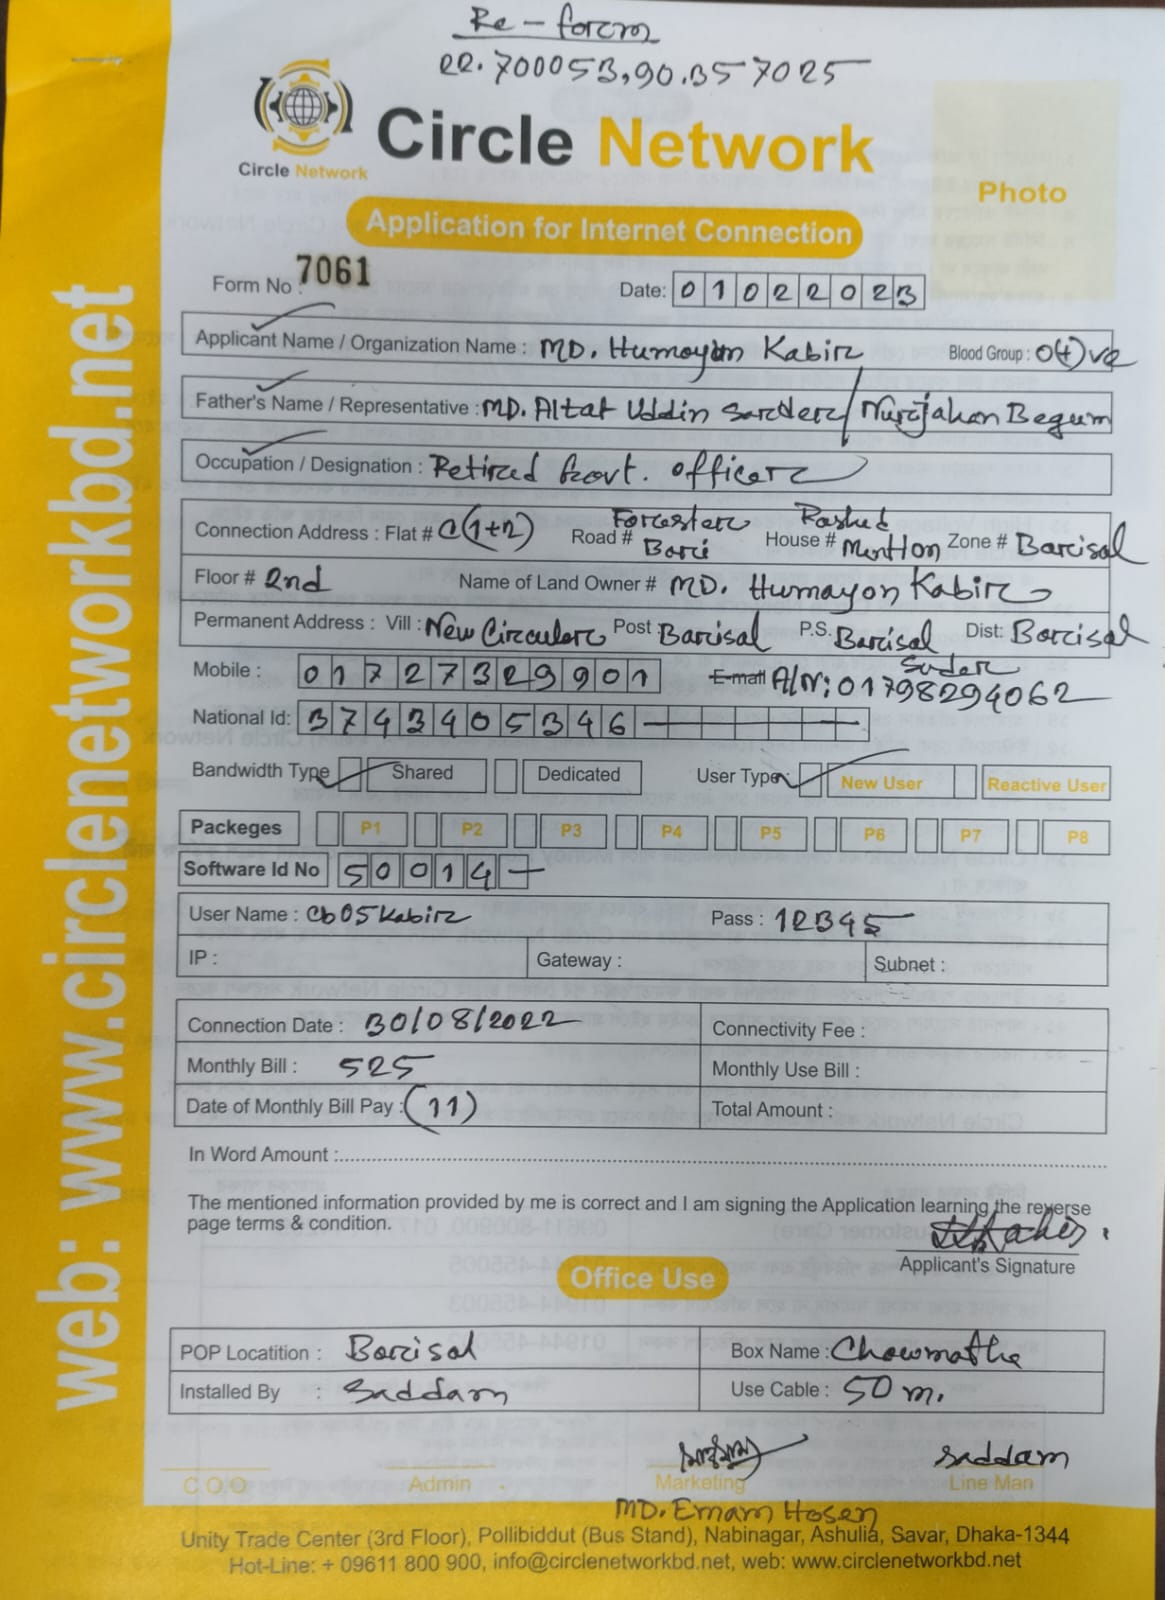 Re-form
22.700053,90.357025
Circle Network
Circle Network
Photo
Application for Internet Connection
Form No : 7061
Date: 01022023
Applicant Name / Organization Name : MD. Humayon Kabir Blood Group : O(+)ve
Father's Name / Representative : MD. Altaf Uddin Sarder/ Nurjahan Begum
Occupation / Designation : Retired Govt. officer
Connection Address : Flat # C(1+2) Road # Forester Bari House # Rashed Zone # Barisal
Floor # 2nd Name of Land Owner # MD. Humayon Kabir
Permanent Address : Vill : New Circular Post : Barisal P.S. Barisal Sader Dist: Barisal
Mobile : 01727329901 E-mail 01798294062
National Id: 3743905346
Bandwidth Type Shared Dedicated User Type: New User Reactive User
Packeges P1 P2 P3 P4 P5 P6 P7 P8
Software Id No 50014
User Name : cb05kabir Pass : 12345
IP : Gateway : Subnet :
Connection Date : 30/08/2022 Connectivity Fee :
Monthly Bill : 525 Monthly Use Bill :
Date of Monthly Bill Pay : (11) Total Amount :
In Word Amount :
The mentioned information provided by me is correct and I am signing the Application learning the reverse
page terms & condition.
Applicant's Signature
Office Use
POP Locatition : Barisal Box Name : Chowmatha
Installed By : Saddam Use Cable : 50 m.
saddam
C.O.O Admin Marketing Line Man
MD. Emam Hosen
Unity Trade Center (3rd Floor), Pollibiddut (Bus Stand), Nabinagar, Ashulia, Savar, Dhaka-1344
Hot-Line: + 09611 800 900, info@circlenetworkbd.net, web: www.circlenetworkbd.net
web: www.circlenetworkbd.net